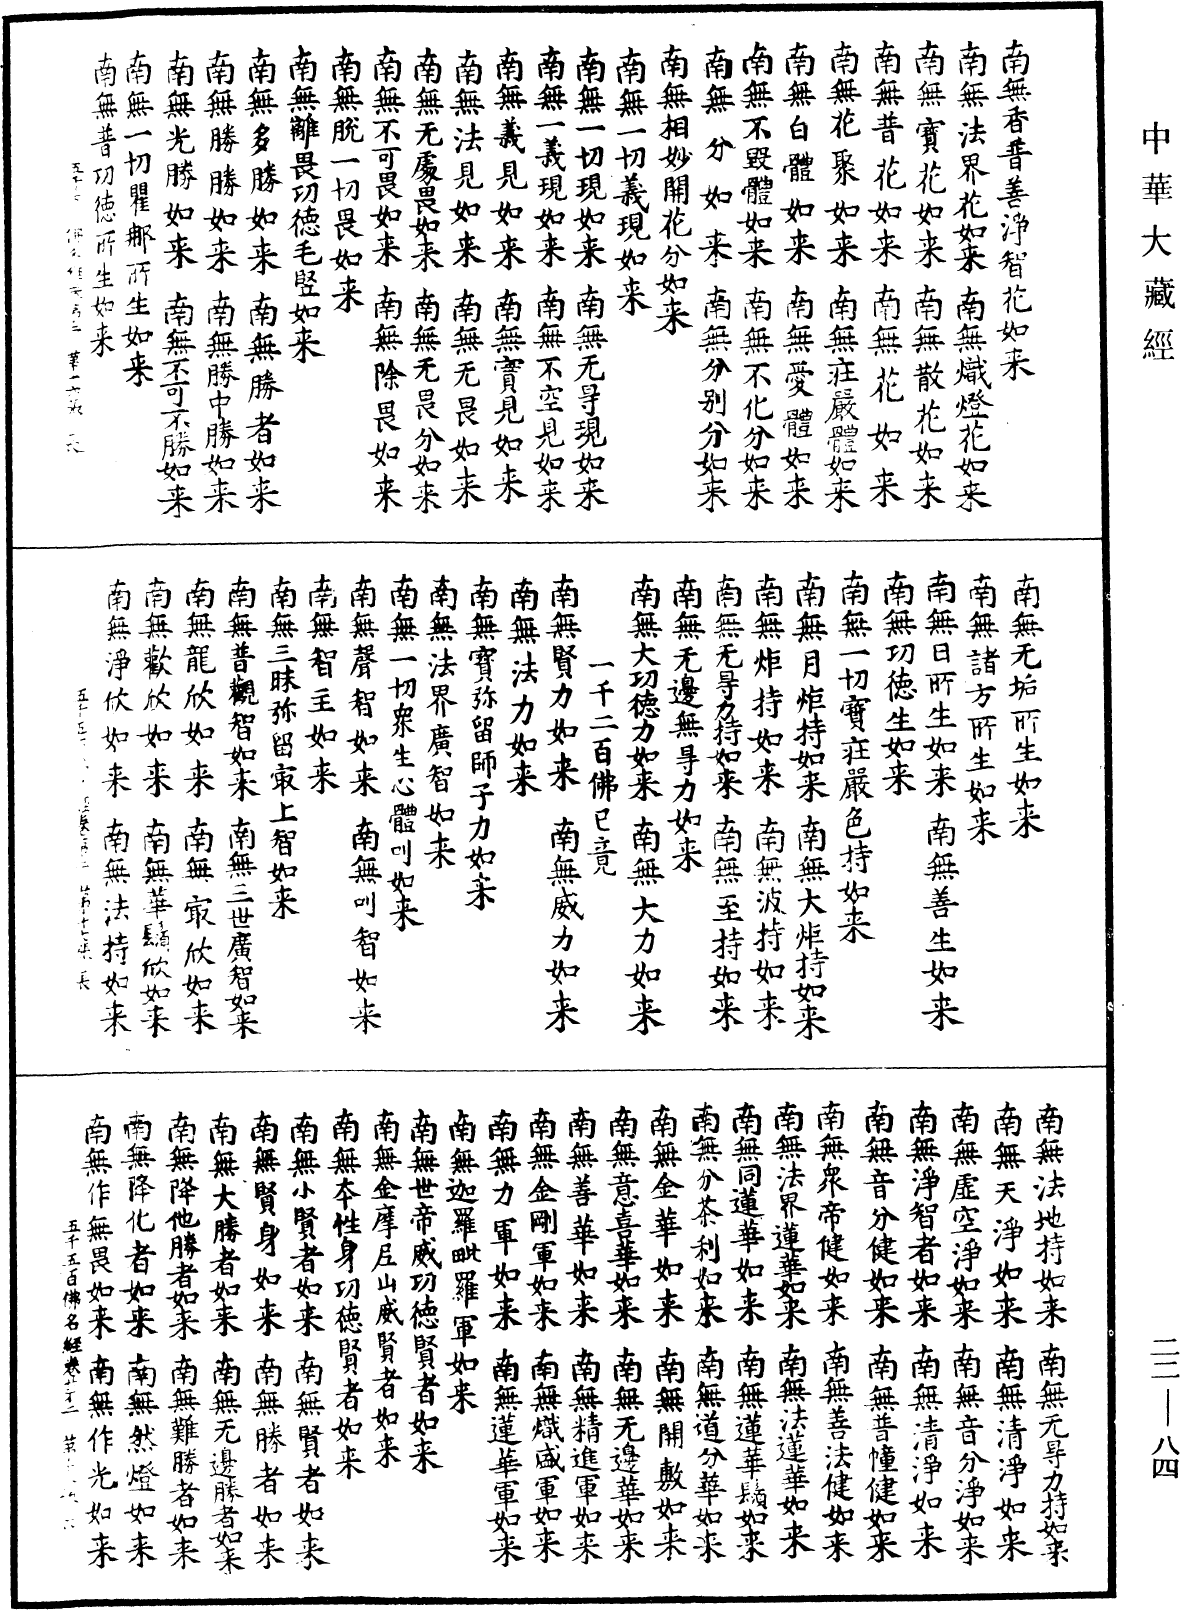 中華大藏經
南無香普善淨智花如来
南無法界花如来 南無熾燈花如来
南無寶花如来 南無散花如来
南無普花如来 南無花如来
南無花聚如来 南無莊嚴體如来
南無白體如来 南無愛體如来
南無不毀體如来 南無不化分如来
南無分如来 南無分别分如来
南無相妙開花分如来
南無一切義現如来
南無一切現如来 南無无㝵現如来
南無一義現如来 南無不空見如来
南無義見如来 南無寶見如来
南無法見如来 南無无畏如来
南無无處畏如来 南無无畏分如来
南無不可畏如来 南無除畏如来
南無脫一切畏如来
南無離畏功德毛竪如来
南無多勝如来 南無勝者如来
南無勝勝如来 南無勝中勝如来
南無光勝如来 南無不可不勝如来
南無一切瞿那所生如来
南無普功德所生如来
南無无垢所生如来
南無諸方所生如来
南無日所生如来 南無善生如来
南無功德生如来
南無一切寶莊嚴色持如来
南無月炬持如来 南無大炬持如来
南無炬持如来 南無波持如来
南無无㝵力持如来 南無至持如来
南無无邊無㝵力如来
南無大功德力如来 南無大力如来
一千二百佛已竟
南無賢力如来 南無威力如来
南無法力如来
南無寶弥留師子力如来
南無法界廣智如来
南無一切衆生心體叫如来
南無聲智如来 南無叫智如来
南無智主如来
南無三昧弥留㝡上智如来
南無普觀智如来 南無三世廣智如来
南無龍欣如来 南無㝡欣如来
南無歡欣如来 南無華鬚欣如来
南無淨欣如来 南無法持如来
南無法地持如来 南無无㝵力持如来
南無天淨如来 南無清淨如来
南無虛空淨如来 南無音分淨如来
南無淨智者如来 南無清淨如来
南無音分健如来 南無普幢健如来
南無衆帝健如来 南無善法健如来
南無法界蓮華如来 南無法蓮華如来
南無同蓮華如来 南無蓮華鬚如来
南無分茶利如来 南無道分華如来
南無金華如来 南無開敷如来
南無意喜華如来 南無无邊華如来
南無善華如来 南無精進軍如来
南無金剛軍如来 南無熾盛軍如来
南無力軍如来 南無蓮華軍如来
南無迦羅毗羅軍如来
南無世帝威功德賢者如来
南無金摩尼山威賢者如来
南無本性身功德賢者如来
南無小賢者如来 南無賢者如来
南無賢身如来 南無勝者如来
南無大勝者如来 南無无邊勝者如来
南無降他勝者如来 南無難勝者如来
南無降化者如来 南無然燈如来
南無作無畏如来 南無作光如来
五千五百佛名經卷
二二—八四